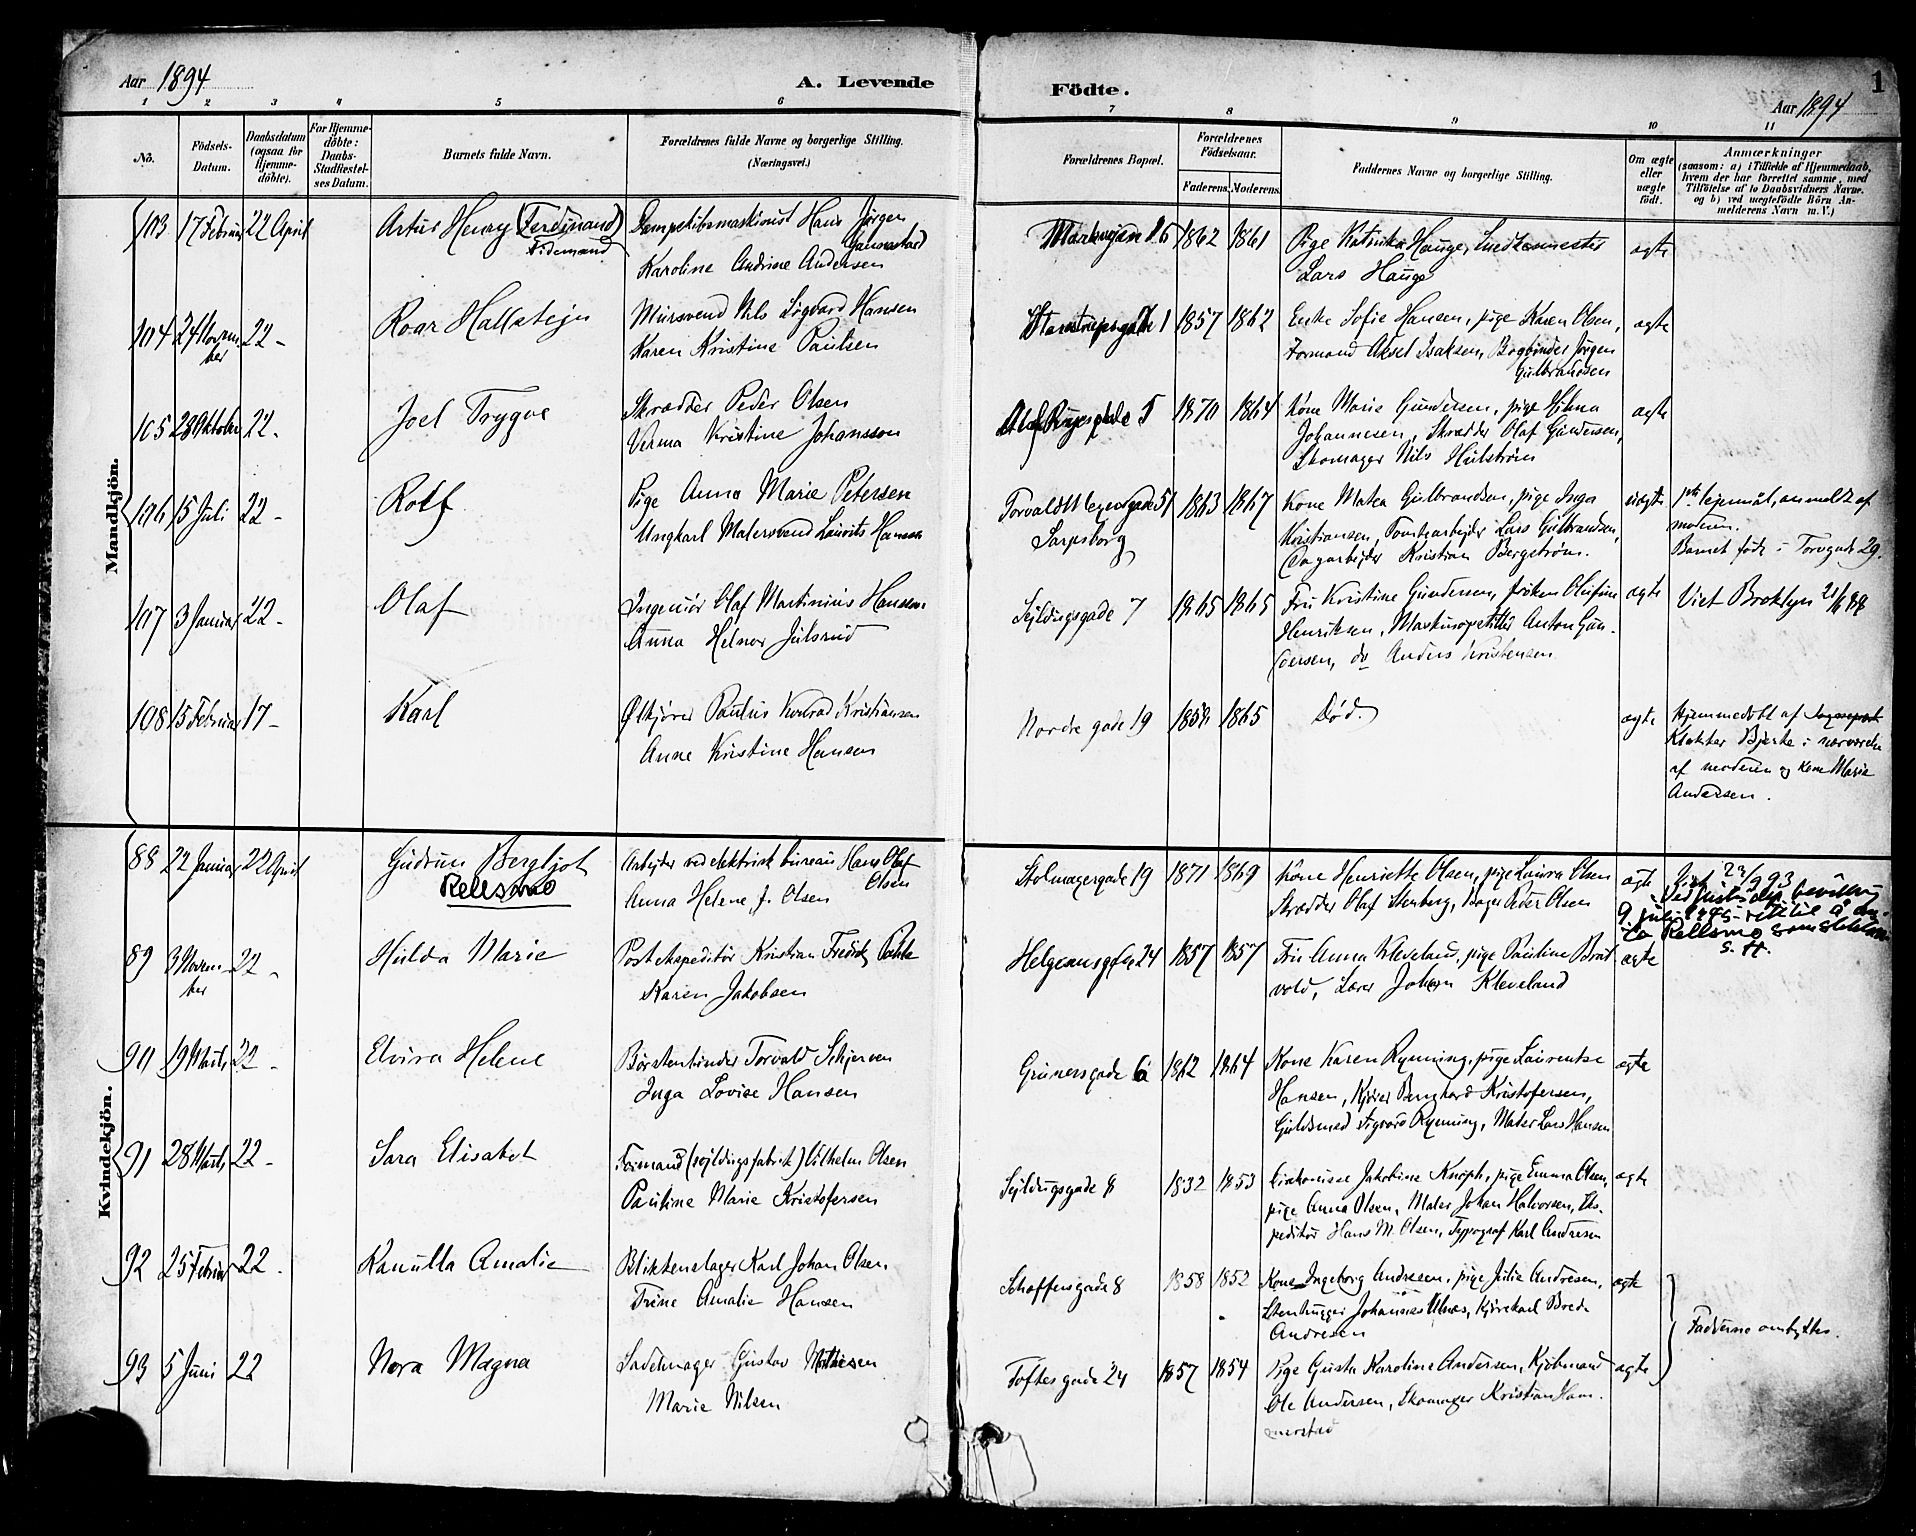 Aar 1894
A. Levende
Födte.
1
Aar 1894
1 2 3 4 5 6 7 8 9 10 11
No.
Födsels-
Datum.
Daabsdatum
(ogsaa for
Hjemme-
döbte).
For Hjemme-
döbte:
Daabs-
Stadfæstel-
ses Datum.
Barnets fulde Navn.
Forældrenes fulde Navne og borgerlige Stilling.
(Næringsvei.)
Forældrenes Bopæl.
Forældrenes
Födselsaar.
Faderens.
Moderens.
Faddernes Navne og borgerlige Stilling.
Om ægte
eller
uægte
födt.
Anmærkninger
(saasom: a) i Tilfælde af Hjemmedaab,
hvem der har forrettet samme, med
Tilföielse af to Daabsvidners Navne.
og b) ved uægtefödte Börn An-
melderens Navn m. V.)
Mandkjön.
103 17 Februar 22 April Artur Henry (Ferdinand) Dampskibsmaskinist Hans Jørgen
Karoline Andrine Andersen
Markvejen 16 1862 1861 Pige Katinka Hauge, Snedkermester
Lars Hauge
ægte
104 24 Novem-
ber
22 - Roar Hallstejn Mursvend Nils Sigvard Hansen
Karen Kristine Paulsen
1 1857 1862 Enke Sofie Hansen, pige Karen Olsen,
Formand Aksel Isaksen, Bogbinder Jørgen
Gulbrandsen
ægte
105 28 Oktober 22 - Joel Trygve Skrædder Peder Olsen
Verma Kristine Johansson
Olaf Ryesplads 5 1870 1864 Kone Marie Gundersen, pige Hilma
Johannesen, Skrædder Olaf Gundersen,
Skomager Nils Hulstrøm
ægte
106 15 Juli 22 - Rolf Pige Anna Marie Petersen
Ungkarl Malersvend Laurits Hansen
Torvald Meyersgade 51
Sarpsborg
1863 1867 Kone Matea Gulbrandsen, pige Inga
Kristiansen, Tomtearbejder Lars Gulbrandsen,
Dagarbejder Kristian Bergstrøm.
uægte 1ste lejermål, anmeldt af
moderen.
Barnet født i Torvgade 29.
107 3 Januar 22 - Olaf Ingeniør Olaf Martinius Hansen
Anna Helnor Julsrud
Sejldugsgade 7 1865 1865 Fru Kristine Gundersen, frøken Olufine
Henriksen, Anton Gun-
dersen, do Anders Kristensen
ægte Viet Broklyn
108 15 Februar 17 - Karl Ølkjører Paulus Konrad Kristiansen
Anne Kristine Hansen
Nordre gade 19 1865 Død.
ægte Hjemmedøbt af
Klokker Bjerke i nærværelse
af moderen og kone Marie
Andersen.
Kvindekjön.
88 22 Januar 22 April Gudrun Bergljot
Rellsmo
Arbejder ved elektrisk bureau Hans Olaf
Olsen
Anna Helene, f. Olsen
Stolmagergade 19 1871 1869 Kone Henriette Olsen, pige Laura Olsen
Skrædder Olaf Stenberg, Bager Peder Olsen
ægte Viet
Ved
Rellsmo som slektsnavn
S. H.
89 3 Novem-
ber
22 - Hulda Marie Postekspeditør Kristian Fredrik
Karen Jakobsen
Helgesensgade 24 1857 1857 Fru Anna Kleveland, pige Pauline Brat
vold, Lærer Johan Kleveland
ægte
90 19 Marts 22 - Elvira Helene Børstenbinder Torvald Skjerven
Inga Lovise Hansen
Grünersgade 6 1862 1864 Kone Karen Rynning, pige Laurentse
Hansen, Kjører Bernhard Kristofersen,
Guldsmed Sigvard Rynning, Maler Lars Hansen
ægte
91 28 Marts 22 - Sara Elisabet Formand (sejldugsfabrik) Vilhelm Olsen
Pauline Marie Kristofersen
Sejldugsgade 8 1832 1853 Diakonisse Jakobine Knoph, pige Emma Olsen,
pige Anna Olsen, Maler Johan Halvorsen, Eks-
peditør Hans M. Olsen, Typograf Karl Andresen
ægte
92 25 Februar 22 - Kamilla Amalie Blikkenslager Karl Johan Olsen
Trine Amalie Hansen
Schoffersgade 8 1858 1852 Kone Ingeborg Andresen, pige Julie Andresen,
Stenhugger Johannes Ulnæs, Kjørekarl Brede
Andresen
ægte
Fadderne ombyttes.
93 5 Juni 22 Nora Magna Sadelmager Gustav Mathisen
Marie Nilsen
Toftesgade 24 1857 1854 Pige Gusta Karoline Andersen, Kjøbmand
Ole Andersen, Skomager Kristian Ham-
merstad
ægte